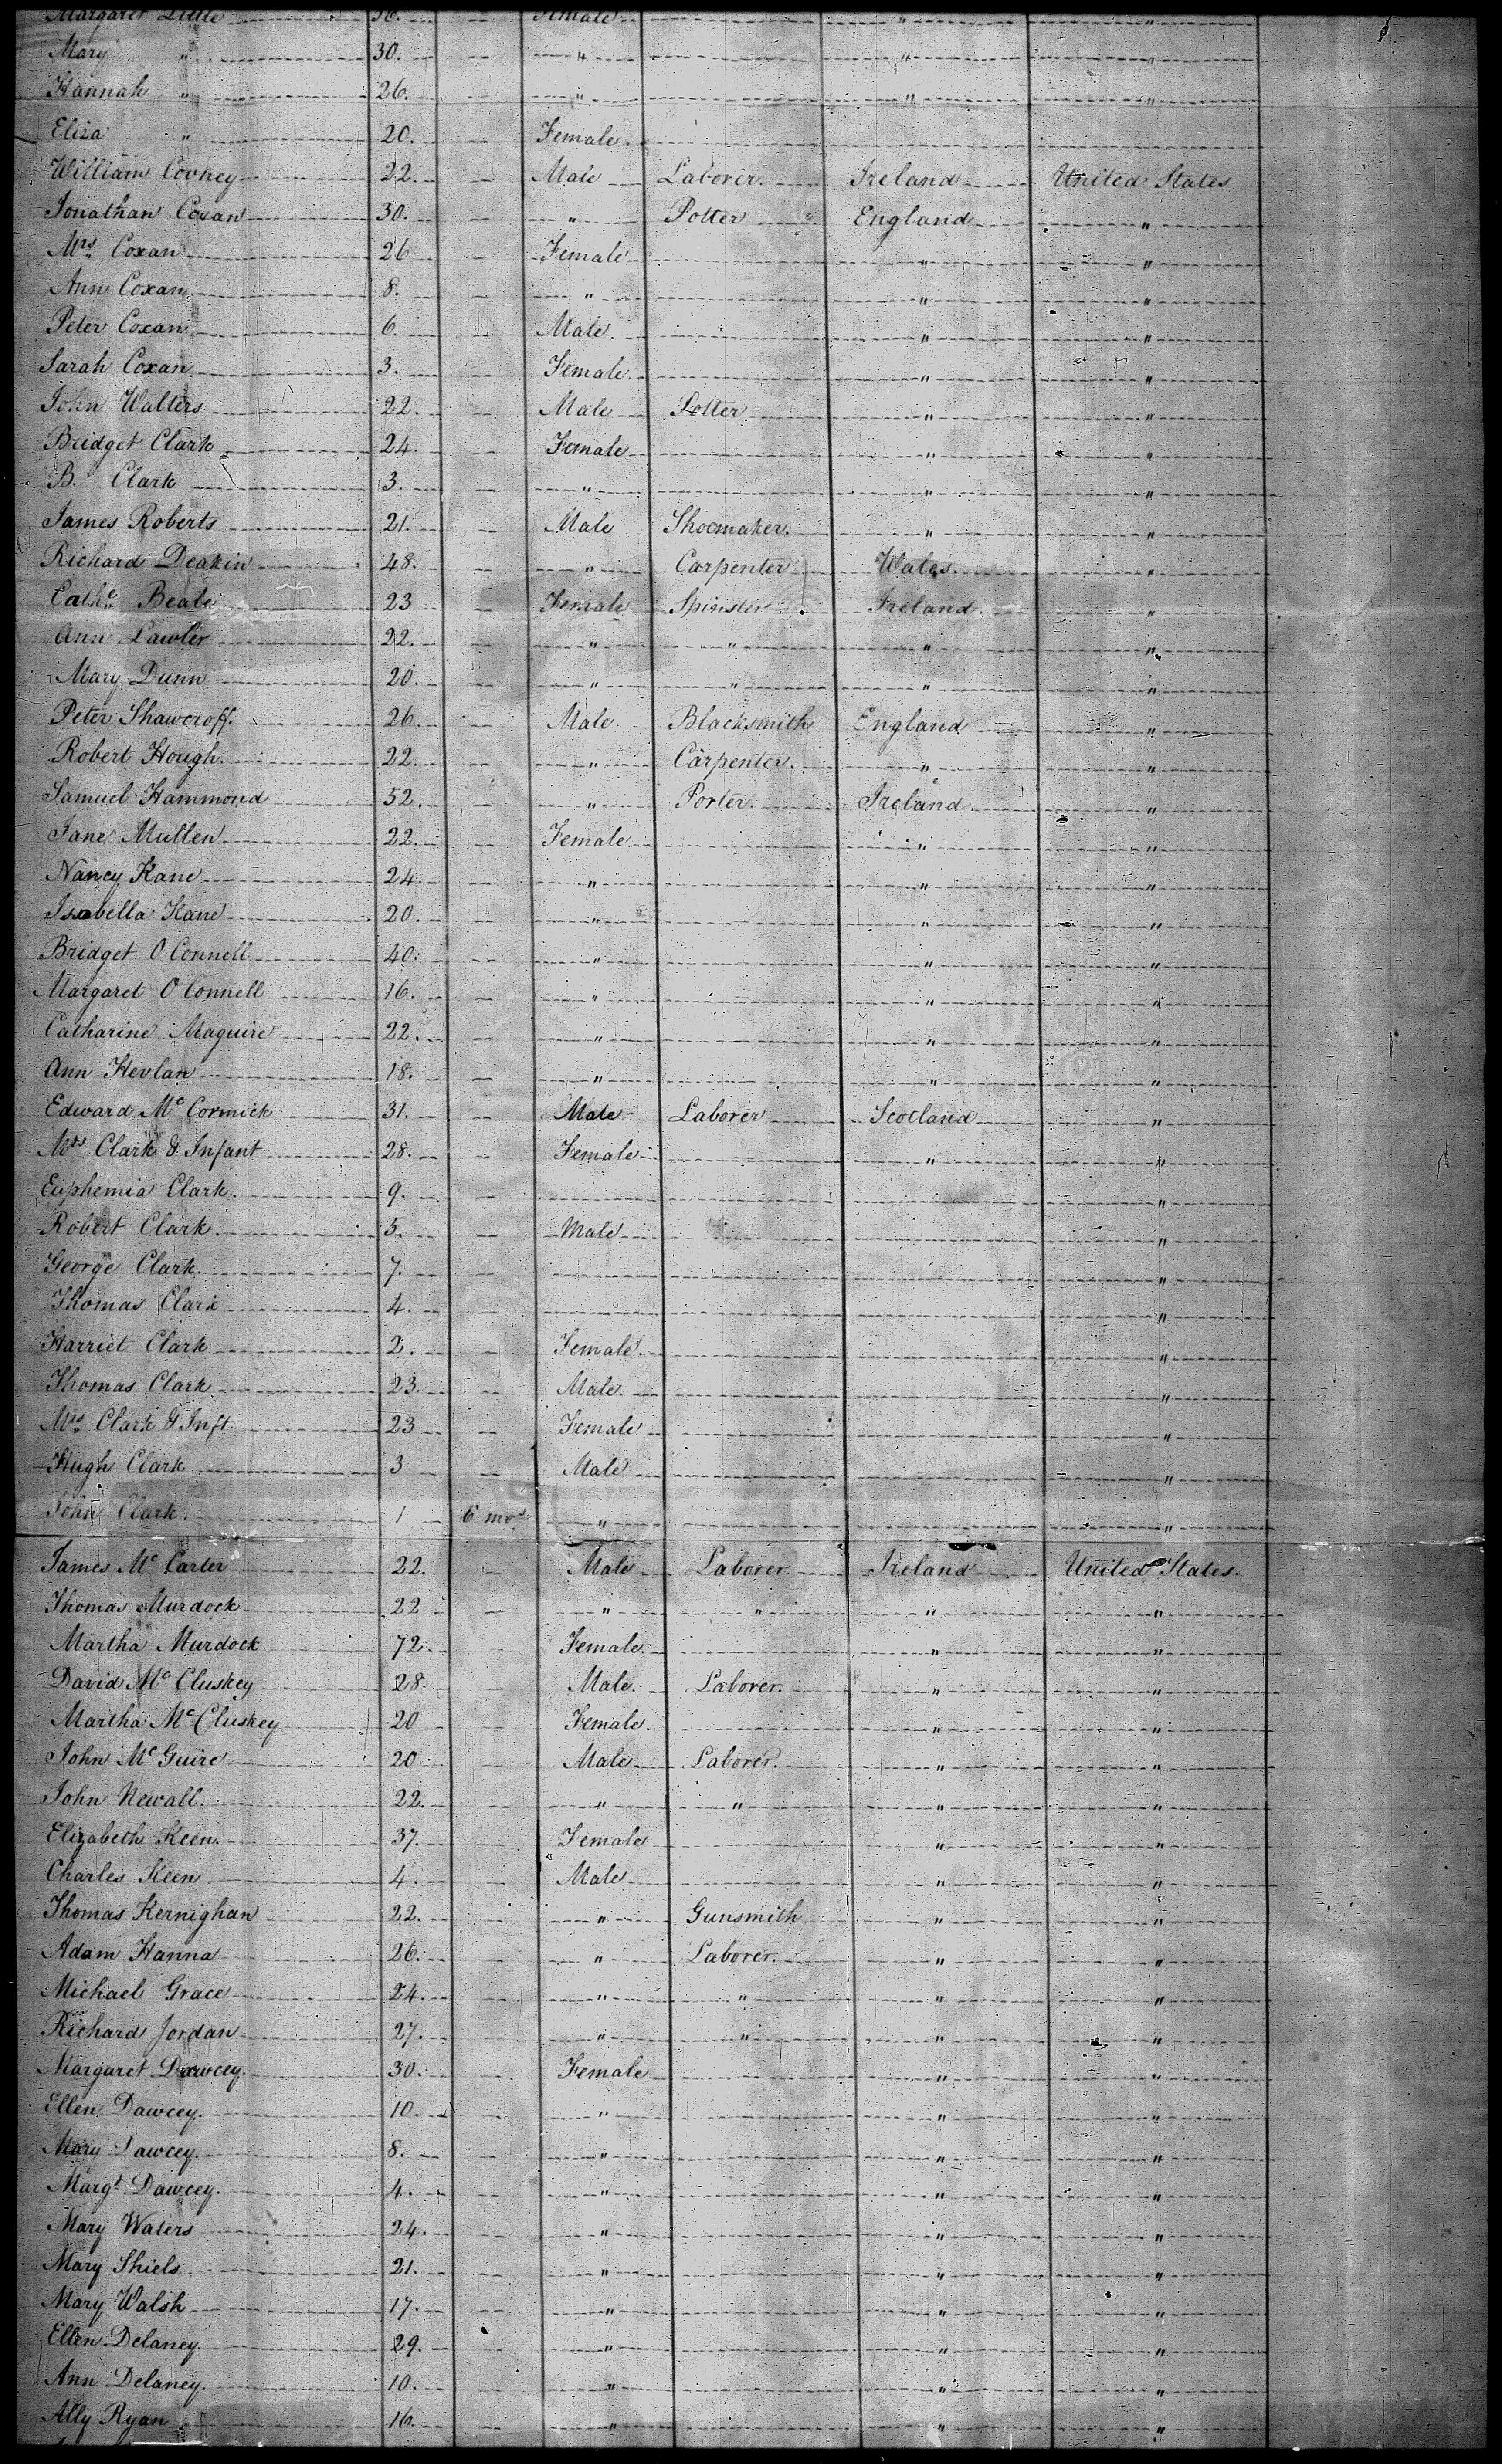 Margaret Little 36. Female " "
Mary " 30. " " "
Hannah " 26. " " "
Eliza " 20. Female.
William Covney 22. Male Laborer. Ireland United States
Jonathan Coxan 30. " Potter England "
Mrs. Coxan 26 Female " "
Ann Coxan 8. " " "
Peter Coxan 6. Male. " "
Sarah Coxan 3. Female. " "
John Walters 22. Male Potter " "
Bridget Clark 24. Female " "
B. Clark 3. " " "
James Roberts 21. Male Shoemaker. " "
Richard Deakin 48. " Carpenter Wales. "
Cathe. Beale 23 Female Spinster Ireland. "
Ann Lawler 22. " " " "
Mary Dunn 20. " " " "
Peter Shawcroff. 26. Male Blacksmith England "
Robert Hough. 22. " Carpenter. " "
Samuel Hammond 52. " Porter. Ireland "
Jane Mullen 22. Female " "
Nancy Kane 24. " " "
Isabella Kane 20. " " "
Bridget O Connell 40. " " "
Margaret O Connell 16. " " "
Catharine Maguire 22. " " "
Ann Hevlan 18. " " "
Edward Mc Cormick 31. Male Laborer Scotland "
Mrs Clark & Infant 28. Female " "
Euphemia Clark. 9. "
Robert Clark. 5. Male "
George Clark. 7. "
Thomas Clark 4. "
Harriet Clark 2. Female. "
Thomas Clark 23. Male. "
Mrs. Clark & Inft. 23 Female "
Hugh Clark 3 Male "
John Clark. 1 6 mos " "
James Mc Carter 22. Male Laborer Ireland United States.
Thomas Murdock 22 " " " "
Martha Murdock 72. Female. " "
David Mc Cluskey 28. Male. Laborer. " "
Martha Mc Cluskey 20 Female. " "
John Mc Guire 20 Male Laborer. " "
John Newall. 22. " " " "
Elizabeth Keen. 37. Female " "
Charles Keen 4. Male " "
Thomas Kernighan 22. " Gunsmith " "
Adam Hanna 26. " Laborer. " "
Michael Grace 24. " " " "
Richard Jordan 27. " " " "
Margaret Dawcey. 30. Female " "
Ellen Dawcey. 10. " " "
Mary Dawcey. 8. " " "
Margt Dawcey. 4. " " "
Mary Waters 24. " " "
Mary Shiels 21. " " "
Mary Walsh 17. " " "
Ellen Delaney. 29. " " "
Ann Delaney. 10. " " "
Ally Ryan 16. " " "